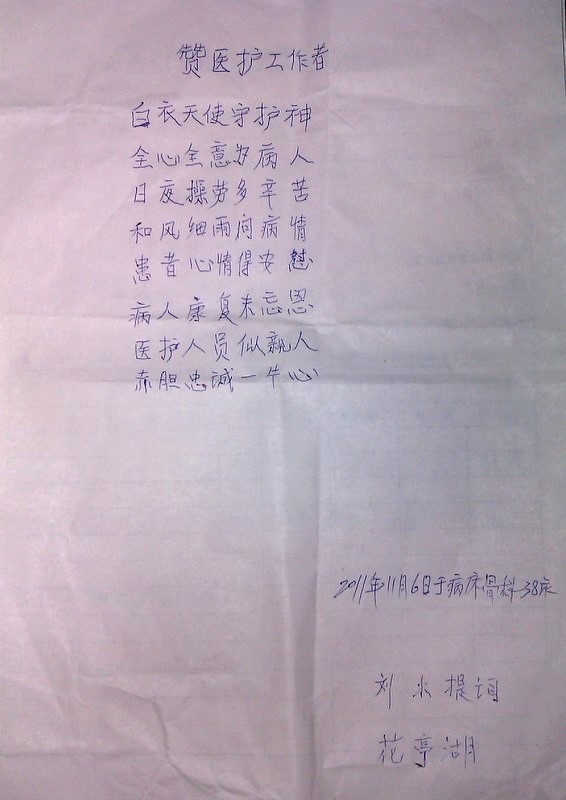 赞医护工作者
白衣天使守护神
全心全意为病人
日夜操劳多辛苦
和风细雨问病情
患者心情得安慰
病人康复未忘恩
医护人员似亲人
赤胆忠诚一片心
2011年11月6日于病床骨科38床
刘水提词
花亭湖